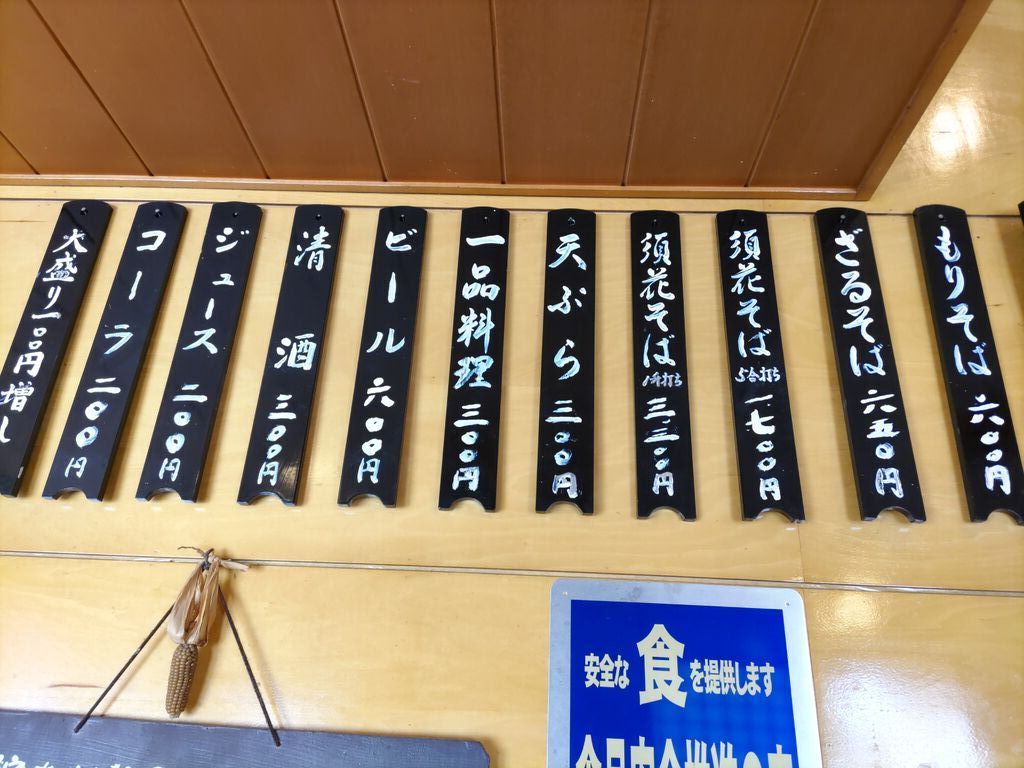 もりそば 六〇〇円
ざるそば 六五〇円
須花そば 5合打ち 一七〇〇円
須花そば 1升打ち 三三〇〇円
天ぷら 三〇〇円
一品料理 三〇〇円
ビール 六〇〇円
清酒 三〇〇円
ジュース 二〇〇円
コーラ 二〇〇円
大盛り一〇〇円増し
安全な食を提供します